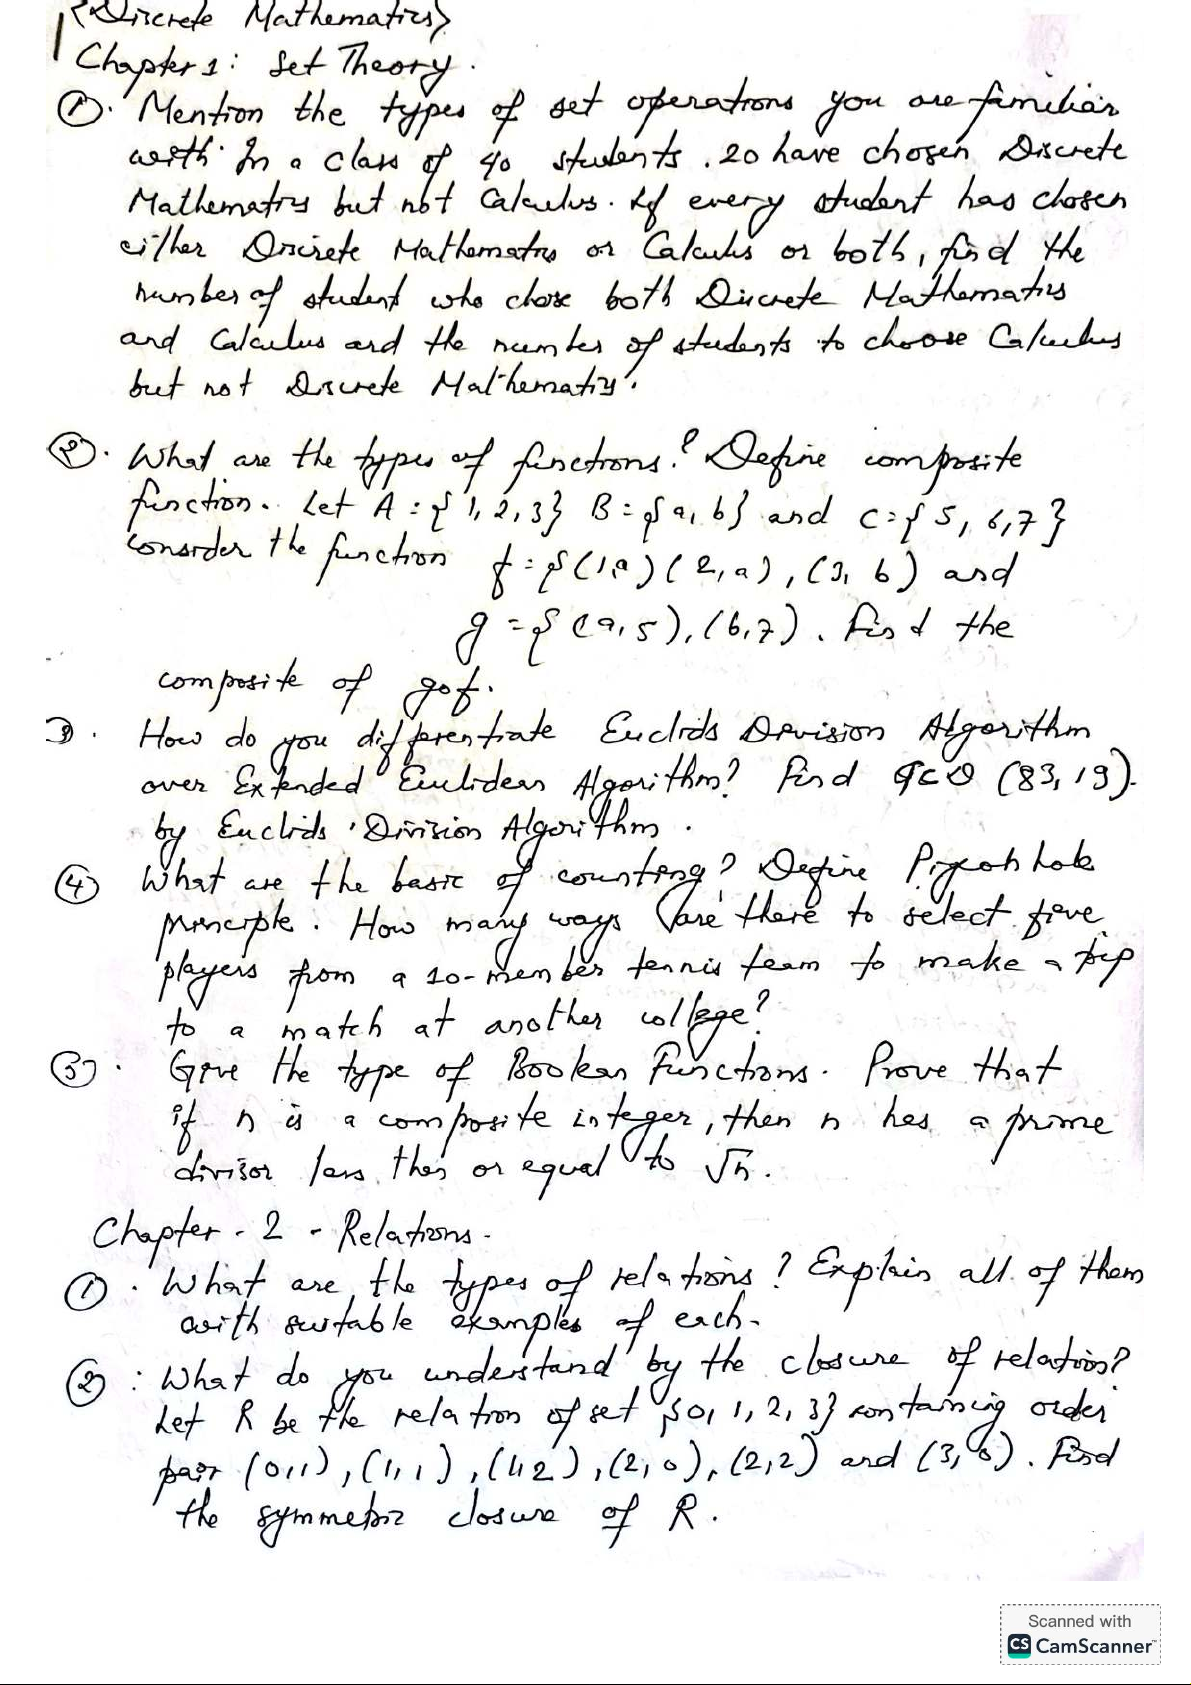 (Discrete Mathematics)
Chapter 1: Set Theory.
①. Mention the types of set operations you are familiar
with. In a class of 40 students. 20 have chosen Discrete
Mathematics but not Calculus. If every student has chosen
either Discrete Mathematics or Calculus or both, find the
number of student who chose both Discrete Mathematics
and Calculus and the number of students to choose Calculus
but not Discrete Mathematics.
②. What are the types of functions? Define composite
function. Let A = {1, 2, 3} B = {a, b} and C = {5, 6, 7}
consider the function f = {(1,a) (2, a), (3, b) and
g = { (a, 5), (b, 7). Find the
composite of gof.
3. How do you differentiate Euclids Division Algorithm
over Extended Euclidean Algorithm? Find GCD (83, 19).
by Euclids Division Algorithm.
④ What are the basic of counting? Define Pigeon hole
principle. How many ways are there to select five
players from a 10-member tennis team to make a trip
to a match at another college?
⑤. Give the type of Boolean Functions. Prove that
if n is a composite integer, then n has a prime
divisor less than or equal to √n.
Chapter - 2 - Relations.
①. What are the types of relations? Explain all of them
with suitable examples of each.
②: What do you understand by the closure of relation?
Let R be the relation of set {0, 1, 2, 3} containing order
pair (0,1), (1,1), (1,2), (2,0), (2,2) and (3,0). Find
the symmetric closure of R.
Scanned with
CS CamScanner